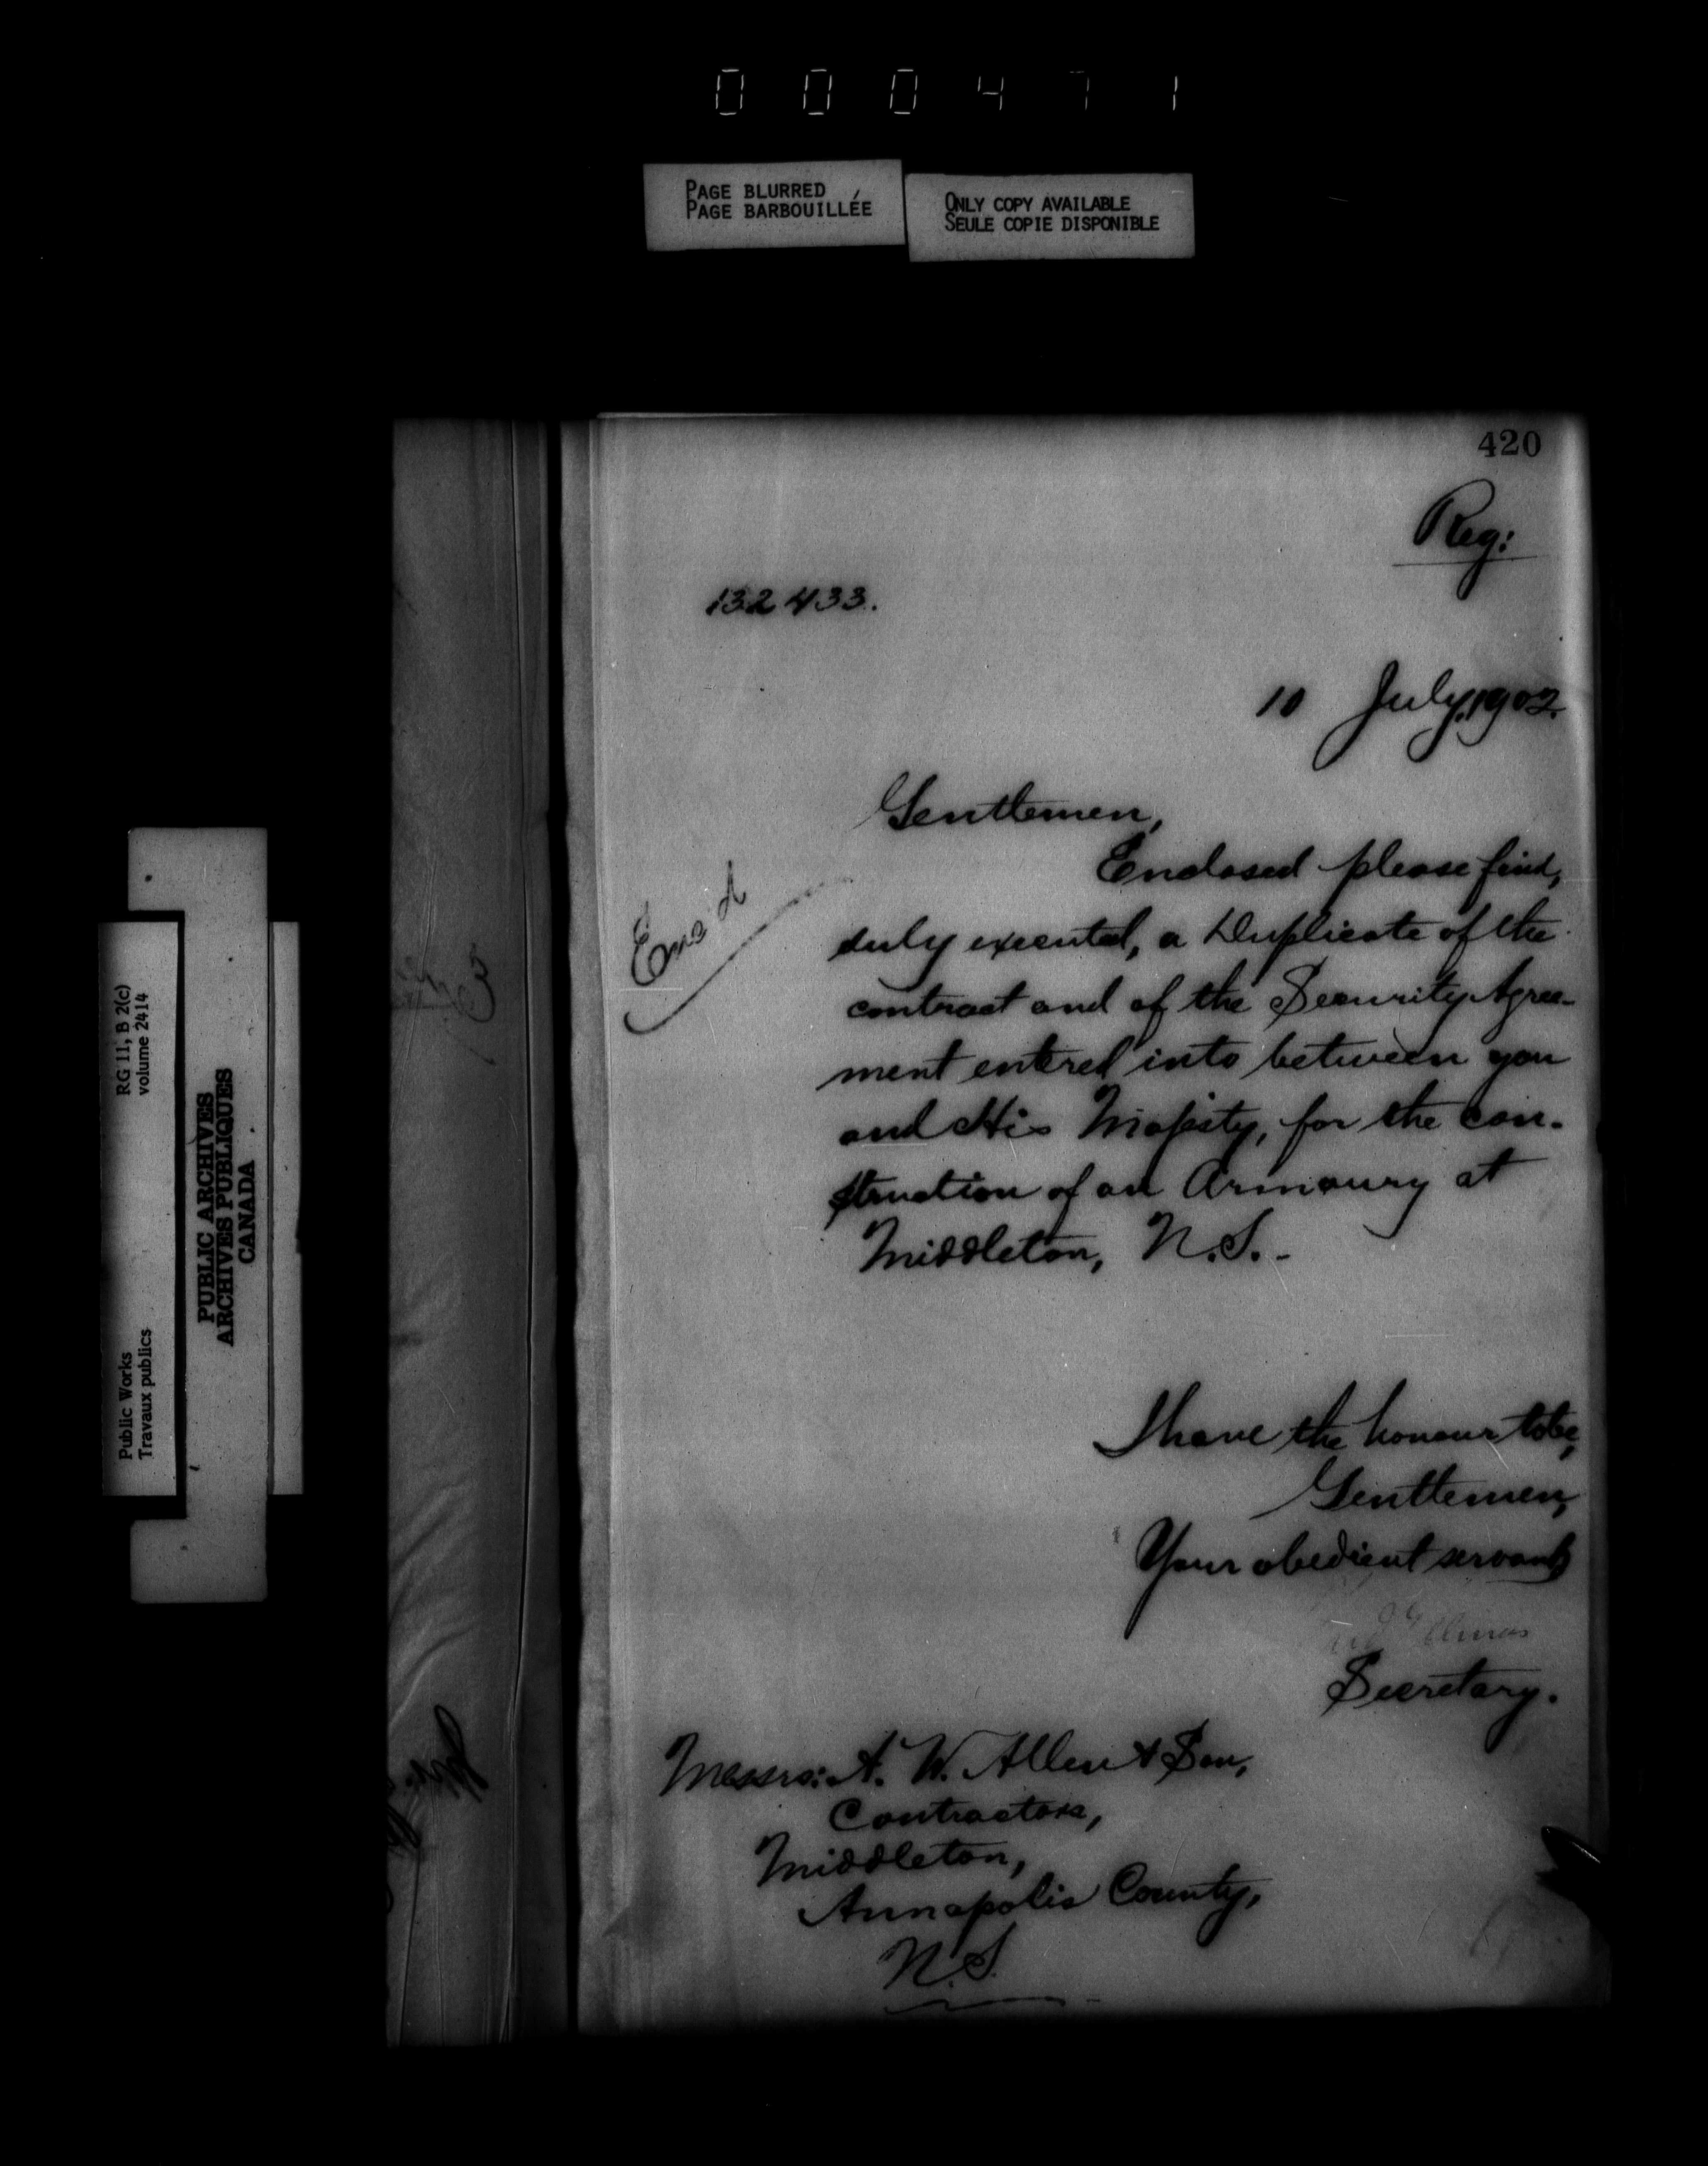 000471
PAGE BLURRED
PAGE BARBOUILLÉE
ONLY COPY AVAILABLE
SEULE COPIE DISPONIBLE
420
Reg:
132433.
10 July, 1902.
Gentlemen,
Enclosed please find,
duly executed, a Duplicate of the
contract and of the Security Agree-
ment entered into between you
and His Majesty, for the con-
struction of an Armoury at
Middleton, N.S.-
I have the honour to be,
Gentlemen,
Your obedient servant,
Secretary.
Messrs: A. W. Allen & Son,
Contractors,
Middleton,
Annapolis County,
N.S.
RG 11, B 2(c)
volume 2414
PUBLIC ARCHIVES
ARCHIVES PUBLIQUES
CANADA
Public Works
Travaux publics